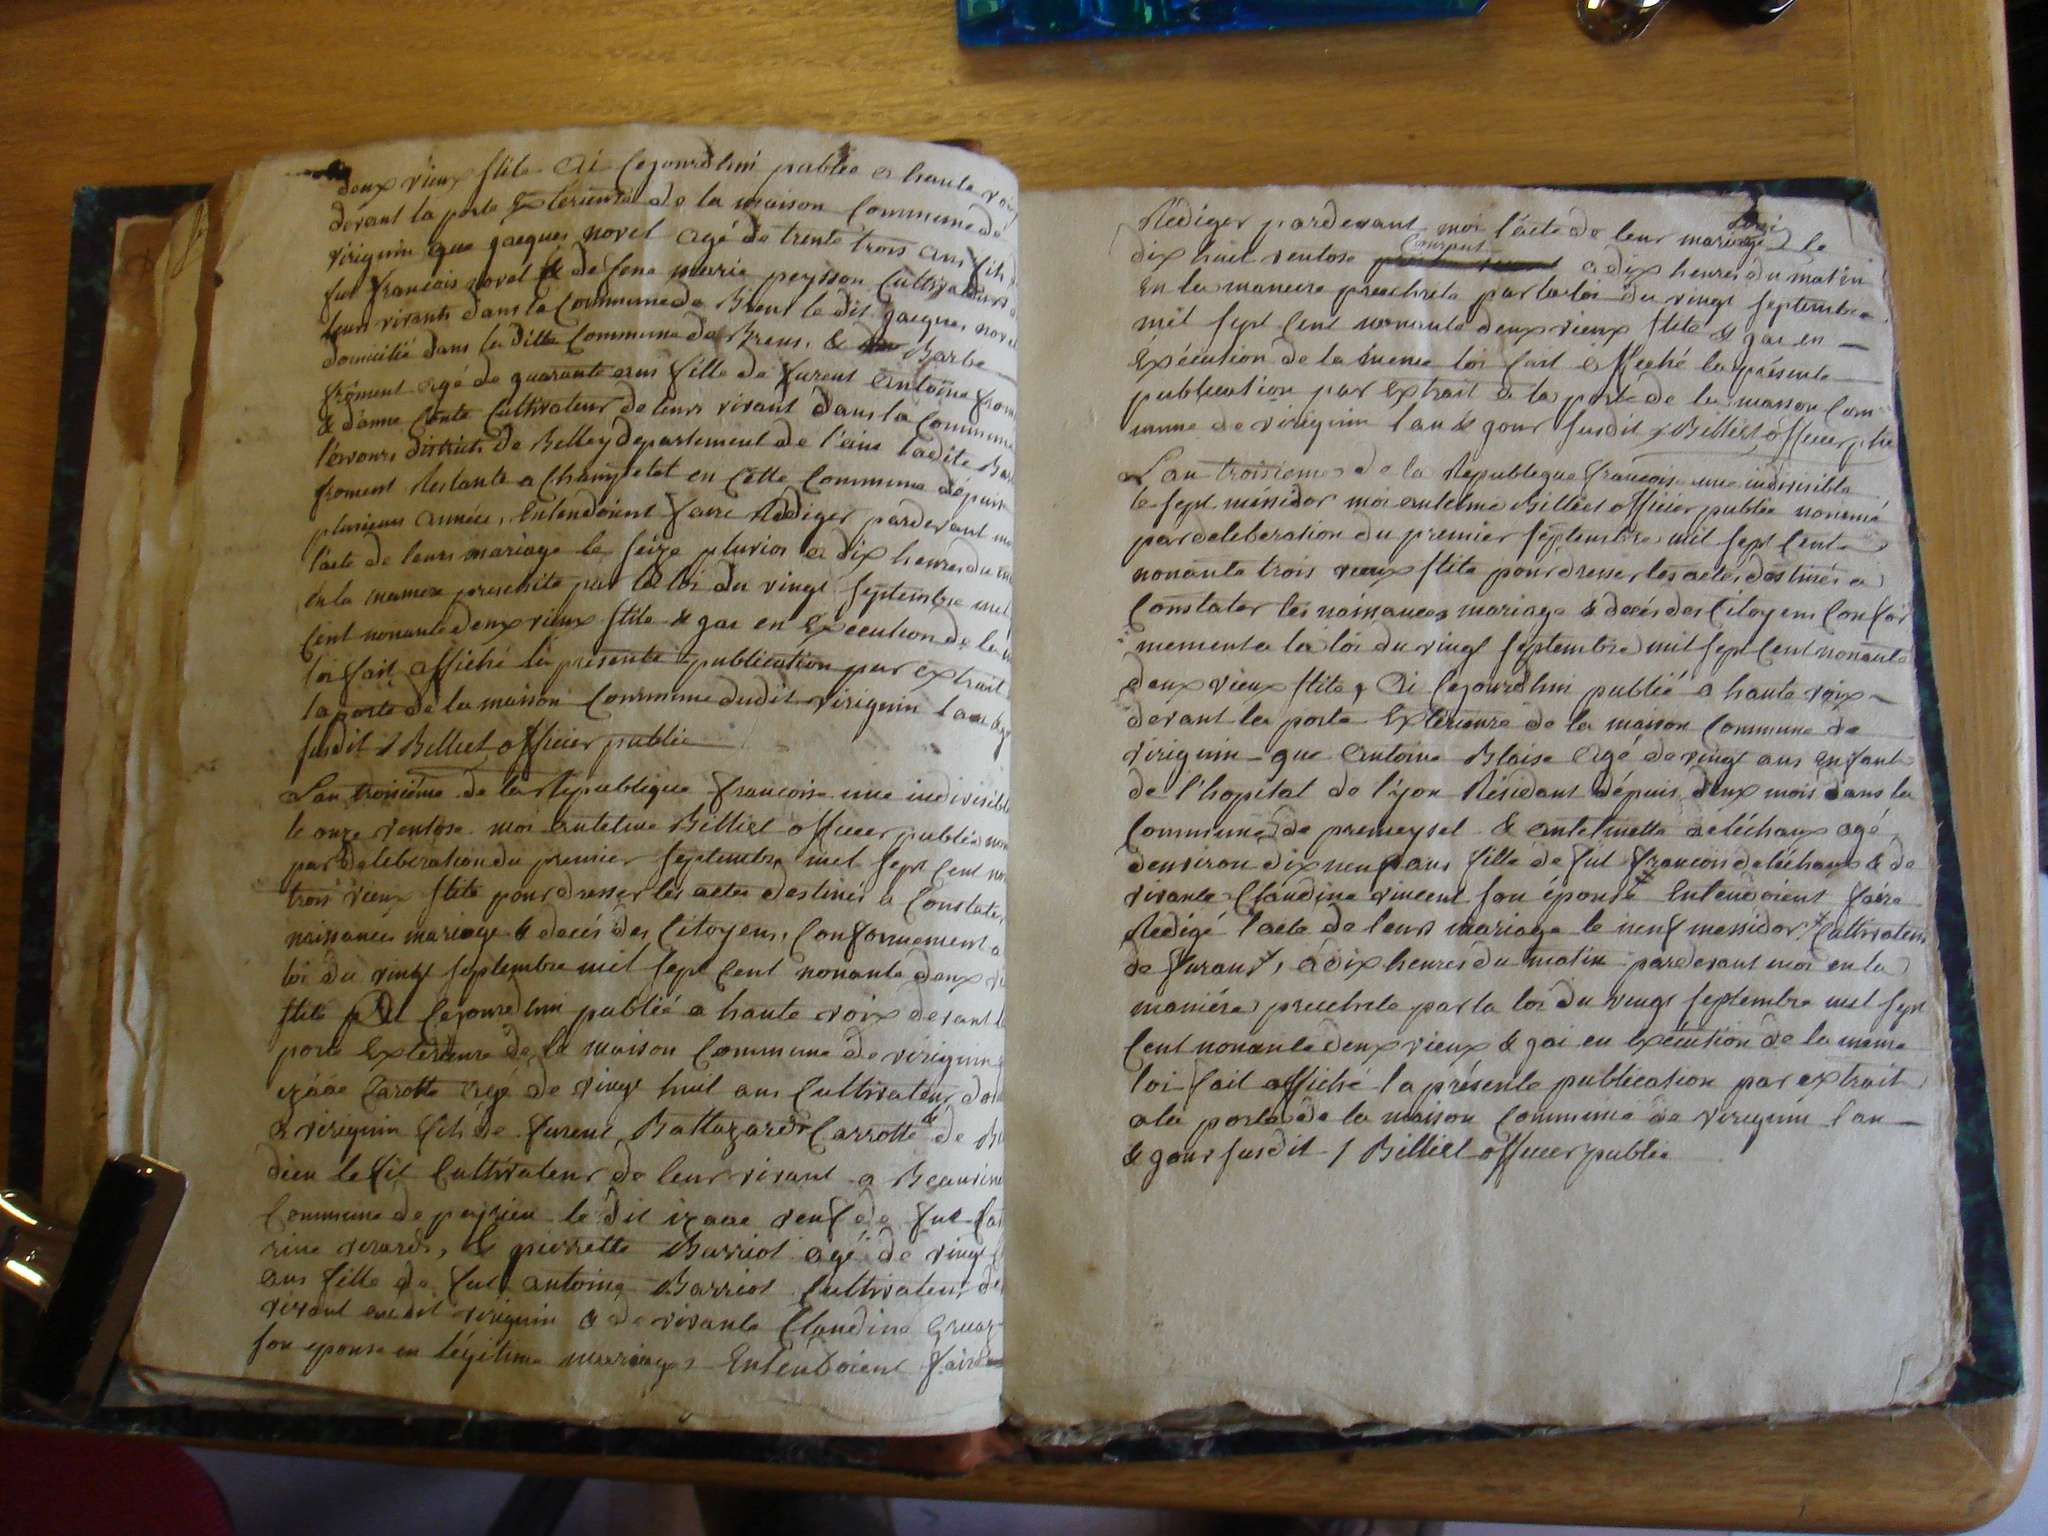 deux vieux stile Ai cejourdhui publée a haute voix
devant la porte Exterieure de la maison Commune de
virignin que jacques novel agé de trente trois ans fils
fut francois novel & de fene marie peysson Cultivateurs
leurs vivants dans la Commune de Brens le dit jacques novel
domicilié dans la ditte Commune de Brens, & Barbe
froment agé de quarante ans fille de furent antoine from
& d'anne Conte Cultivateur de leurs vivant dans la Commune
districts de Belley departement de l'ain ladite Bar
froment Restante a Champtetet en Cette Commune dépuis
plusieurs année, Entendoient faire Rédiger pardevant mo
l'acte de leurs mariage le seize pluvios a dix heures du m
en la maniere preschrite par la loi du vingt septembre mil
Cent nonante deux vieux stile & jai en Execution de la m
loi fait affiché la présente publication par extrait
la porte de la maison Commune dudit virignin l'an & j
susdit / Billiet officier public
L'an troisième de la Republique francoise une indivisible
le onze ventose moi antelme Billiet officier public nom
par deleberation du premier septembre mil sept Cent no
trois vieux stile pour dresser les actes destinés a Constater
naissances mariage & decés des Citoyens, Conformement a
loi du vingt septembre mil sept Cent nonante deux vi
stile Ai Cejourdhui publié a haute voix devant l
porte Exterieure de la maison Commune de virignin
izaac Carotte agé de vingt huit ans Cultivateur do
a virignin fils de furent Baltazard Carrotte & de B
dieu lefit Cultivateur de leur vivant a Beauvin
Commune de peyrieu le dit izaac veuf de fut Ca
rine verard, & pierrette Barriot agé de vingt
ans fille de fut antoine Barriot Cultivateur de
vivant audit virignin & de vivante Claudine Gruaz
son epouse en légitime mariage Entendoient faire
Rédiger pardevant moi l'acte de leur mariage le
dix huit ventose Courant a dix heures du matin
En la maniere prescrhite par la loi du vingt septembre
mil sept Cent nonante deux vieux stile & jai en
Exécution de la meme loi fait affiché la présente
publication par Extrait a la porte de la maison Com
mune de virignin l'an & jour susdit / Billiet officier plic
L'an troisieme de la Republique francoise une indivisible
le sept méssidor moi antelme Billiet officier public nommé
par deleberation du premier septembre mil sept Cent
nonante trois vieux stile pour dresser les actes destinés a
Constater les naissances mariage & decés des Citoyens Confor
mement a la loi du vingt septembre mil sept Cent nonante
deux vieux stile, Ai Cejourdhui publié a haute voix
devant la porte Extérieure de la maison Commune de
virignin que antoine Blaise agé de vingt ans enfant
de l'hopital de l'yon Résidant dépuis deux mois dans la
Commune de premeysel & antelmette deléchaux agé
denviron dix neuf ans fille de fut francois deléchaux & de
vivante Claudine vincent son épouse Entendoient faire
Rédigé l'acte de leurs mariage le neuf messidor + Cultivateurs
de furans +, a dix heures du matin pardevant moi en la
maniére prescrhite par la loi du vingt septembre mil sept
Cent nonante deux vieux & jai en Exécution de la meme
loi fait affiché la présente publication par extrait
a la porte de la maison Commune de virignin l'an
& jour susdit / Billiet officier public